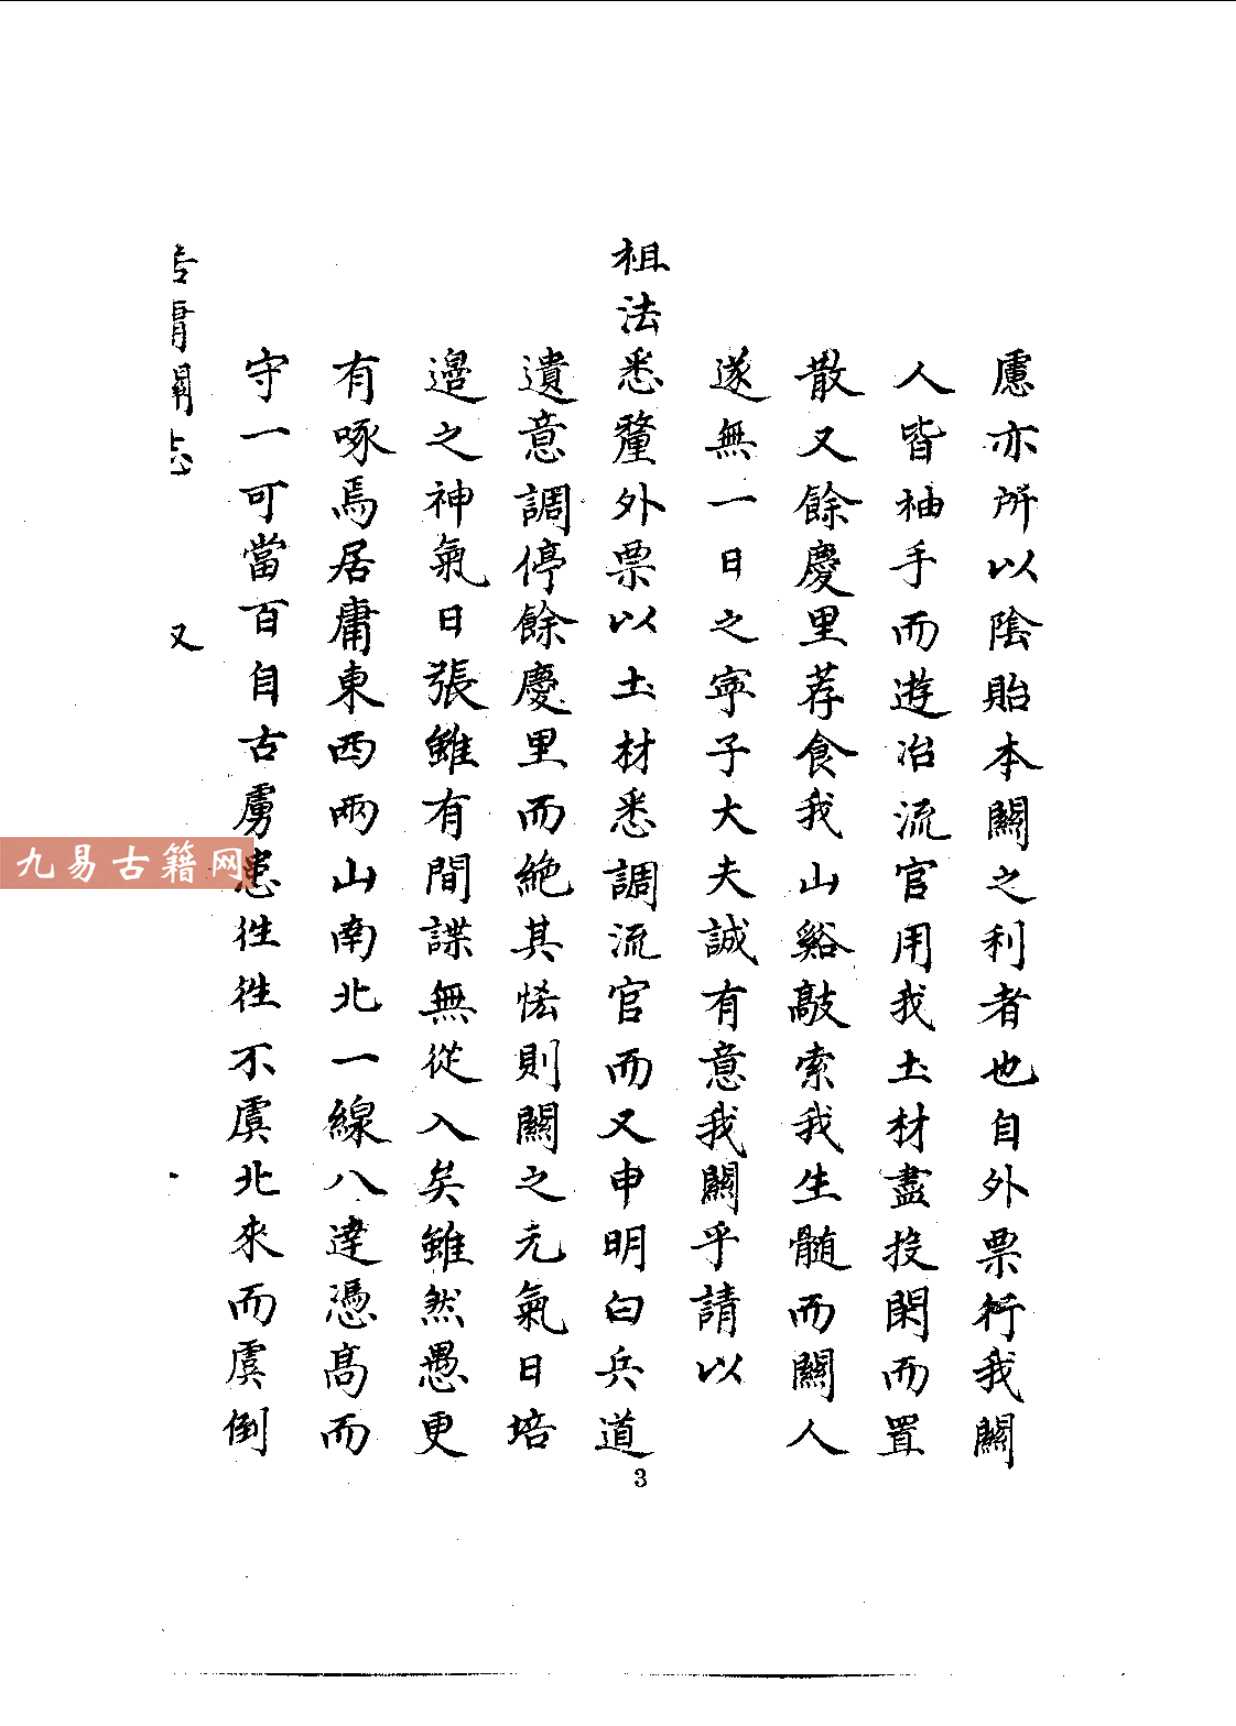 慮亦所以陰貽本關之利者也自外票行我關
人皆袖手而遊冶流官用我土材盡投閑而置
散又餘慶里荐食我山谿敲索我生髄而關人
遂無一日之寜子大夫誠有意我關乎請以
祖法悉釐外票以土材悉調流官而又申明白兵道
遺意調停餘慶里而絶其恡則關之元氣日培
邉之神氣日張雖有間諜無從入矣雖然愚更
有啄焉居庸東西兩山南北一線八達憑高而
守一可當百自古虜患徃徃不虞北來而虞倒
居庸關志
又
3
九易古籍网